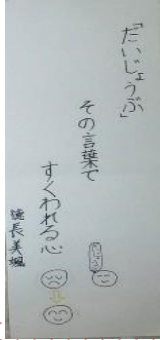 「だいじょうぶ」
その言葉で
すくわれる心
徳長美颯